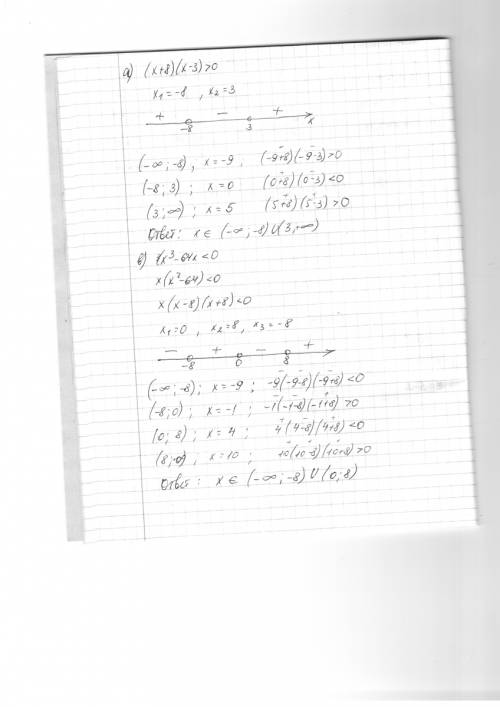 а) (x+8)(x-3)>0
x₁=-8 , x₂=3
+ - +
-8 3 x
(-∞; -8) , x=-9 , (-9+8)(-9-3)>0
(-8; 3) ; x=0 (0+8)(0-3)<0
(3; ∞) ; x=5 (5+8)(5-3)>0
Ответ: x∈ (-∞; -8)∪(3,+∞)
в) x³-64x<0
x(x²-64)<0
x(x-8)(x+8)<0
x₁=0 , x₂=8, x₃=-8
- + - +
-8 0 8
(-∞; -8); x=-9 ; -9(-9-8)(-9+8)<0
(-8; 0) ; x=-1 ; -1(-1-8)(-1+8)>0
(0; 8) ; x=4 ; 4(4-8)(4+8)<0
(8; ∞) , x=10 ; 10(10-8)(10+8)>0
Ответ: x∈ (-∞; -8)∪(0; 8)